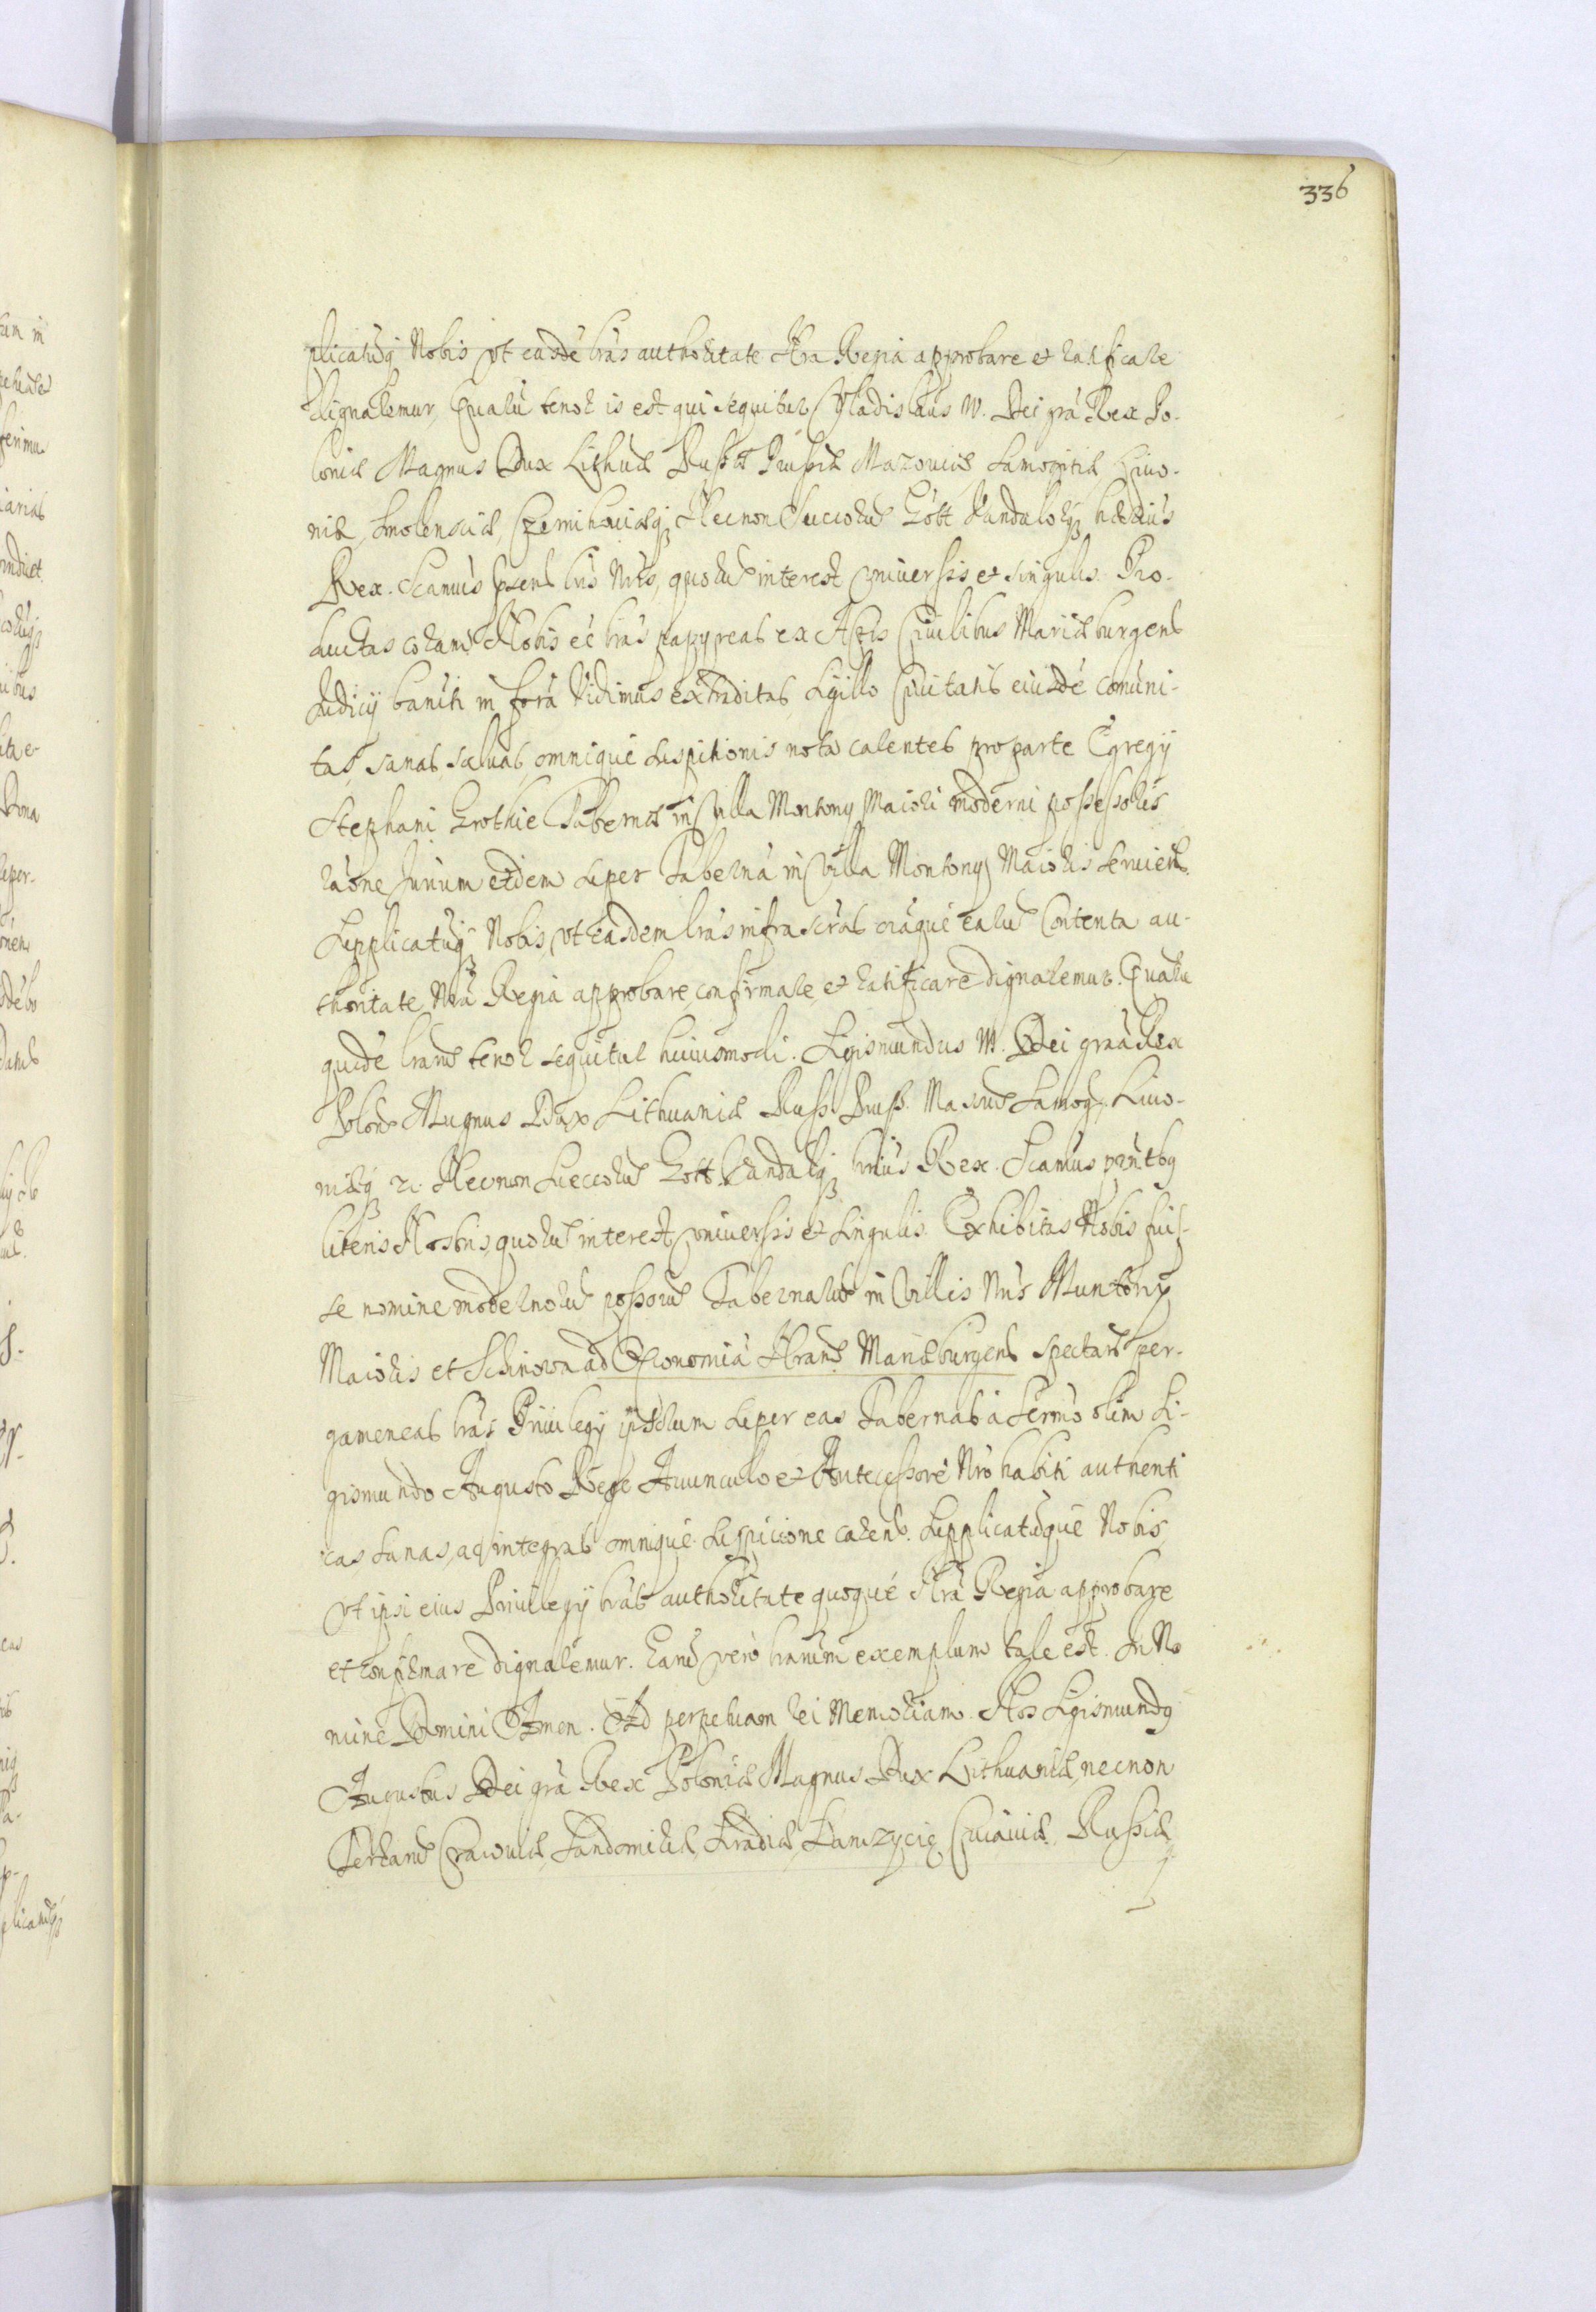 336
plicatuq́ Nobis vt easdē lrãs authoritate Nra Regia approbare et ratificare
dignaremur, Quarū tenor is est qui sequitur Vladislaus IV. Dei grã Rex Po-
loniæ Magnus Dux Lithuæ Russiæ Prussiæ Mazouiæ Samogitiæ Liuo-
niæ, Smolensciæ, Czernihouiæq́ Necnon Suecorū Gott Vandalorq́ hæreus
Rex. Scamus psent lris Nris, quorū interest vniuersis et singulis. Pro-
ductas coram Nobis eē lrãs papyreas ex Actis Ciuilibus Mariæburgens
Judicy baniti in forā Vidimus extraditas, Sigillo Ciuitatis eiusdē comuni-
tas, sanas, saluas, omnique suspitionis nota carentes pro parte Egregy
Stephani Grothie Tabernæ in Villa Montony Maiori moderni possessoris
rãone Jurium eidem super Tabernā in Villa Montony Maioris seruiens.
Supplicatuq́ Nobis, vt easdem lrãs infra scrãs oiãque earū Contenta au-
thoritate Nrã Regia approbare, confirmare, et ratificare dignaremur. Quarū
quidē lrarū tenor sequitur huiusmodi. Sigismundus III. Dei graã Rex
Polon Magnus Dux Lithuaniæ Russ. Pruss. Masouæ Samog. Liuo-
niæq́ zc. Necnon Sueccorū Gott. Vandalq́ hrius Rex. Scamus pñtbg
literis Nostris, quorū interest, vniuersis et singulis. Exhibitas Nobis fuis-
se nomine modernorū possorū Tabernarū in Villis Nris Muntony
Maioris et Schinowa ad Oeconomiā Nram Mariæburgens spectans per-
gameneas lrãs Priuilegy ipsorum super eas Tabernas à Sermo olim Si-
gismundo Augusto Rege Auunculo et Antecessore Nro habiti authenti
cas sanas, ac integras omnique suspicione carens. Supplicatūque Nobis,
vt ipsi eius Priuilegy lrãs authoritate quoque Nrã Regia approbare
et confirmare dignaremur. Earū vero lrarum exemplum tale est. In No
mine Domini Amen. Ad perpetuam rei Memoriam. Nos Sigismundg
Augustus Dei grã Rex Poloniæ Magnus Dux Lithuaniæ, necnon
Terrarū Cracouiæ, Sandomiriæ, Siradiæ, Lanczyciæ, Cuiauiæ, Russiæ